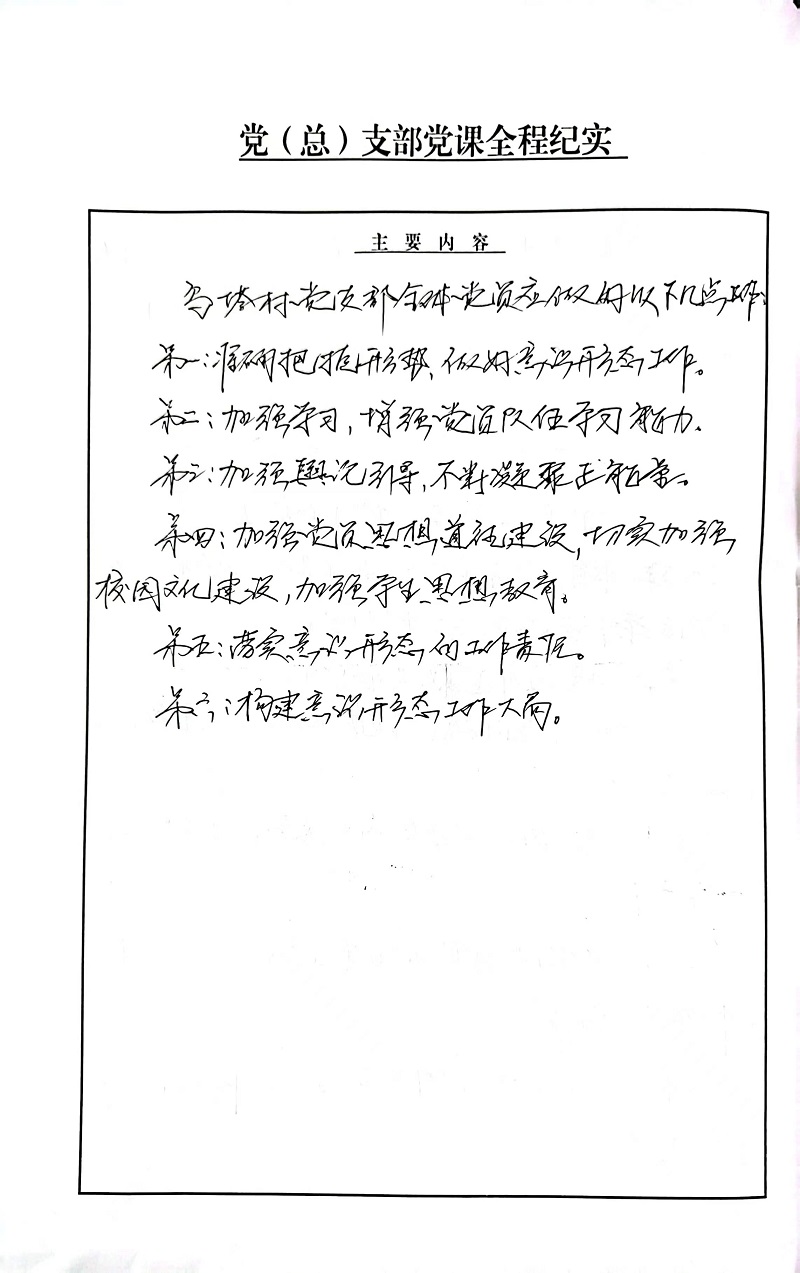 党（总）支部党课全程纪实
主要内容
乌塔村党支部全体党员应做的以下几点工作：
第一：准确把握形势、做好意识形态工作。
第二：加强学习，增强党员队伍学习能力.
第三：加强舆论引导，不断凝聚正能量。
第四：加强党员思想道德建设，切实加强
校园文化建设，加强学生思想教育。
第五：落实意识形态的工作责任。
第六：构建意识形态工作大局。